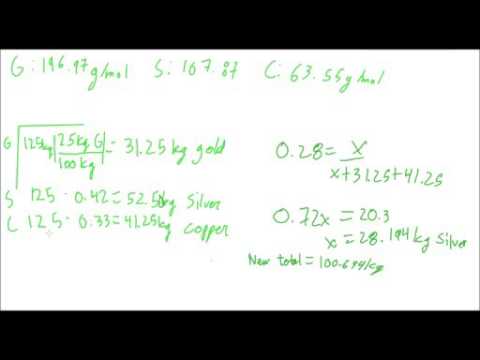 G: 196.97 g/mol S: 107.87 C: 63.55 g/mol
G 125kg | 25kg G / 100 kg = 31.25 kg gold
S 125 · 0.42 = 52.5 kg Silver
C 125 · 0.33 = 41.25 kg copper
0.28 = x / x + 31.25 + 41.25
0.72x = 20.3
x = 28.194 kg Silver
New total = 100.694 kg